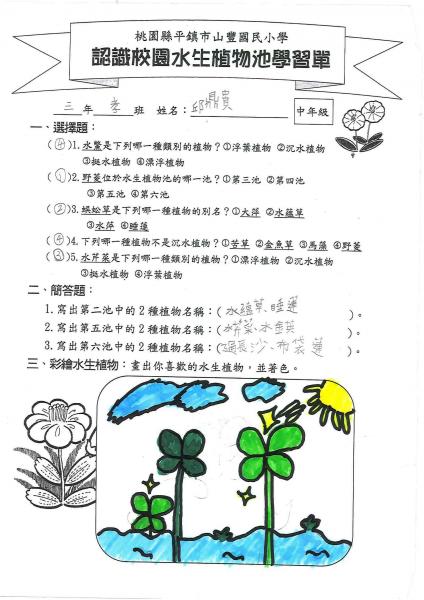 桃園縣平鎮市山豐國民小學
認識校園水生植物池學習單
三年孝班 姓名：邱鼎貴 中年級
一、選擇題：
(4)1.水鱉是下列哪一種類別的植物？①浮葉植物 ②沉水植物
③挺水植物 ④漂浮植物
(1)2.野菱位於水生植物池的哪一池？①第三池 ②第四池
③第五池 ④第六池
(2)3.蜈蚣草是下列哪一種植物的別名？①大萍 ②水蘊草
③水萍 ④睡蓮
(4)4.下列哪一種植物不是沉水植物？①苦草 ②金魚草 ③馬藻 ④野菱
(3)5.水芹菜是下列哪一種類別的植物？①漂浮植物 ②沉水植物
③挺水植物 ④浮葉植物
二、簡答題：
1.寫出第二池中的2種植物名稱：(水蘊草、睡蓮)。
2.寫出第五池中的2種植物名稱：(水芹菜、水金英)。
3.寫出第六池中的2種植物名稱：(沙、布袋蓮)。
三、彩繪水生植物：畫出你喜歡的水生植物，並著色。